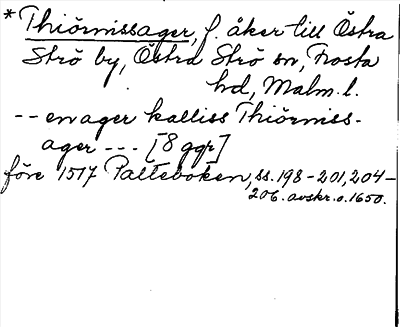 * Thiörnissager, f. åker till Östra
Strö by, Östra Strö sn, Frosta
hd, Malm. l.
-- en ager kalliss Thiörniss-
ager --- [8 ggr]
före 1517 Palteboken, ss. 198-201, 204-
206. avskr. o. 1650.